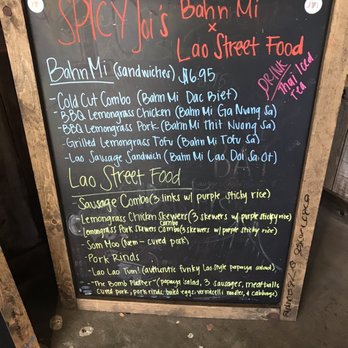 SPICY Joi's Bahn Mi
x
Lao Street Food
Bahn Mi (sandwiches) $6.95
DRINK
Thai Iced
Tea
- Cold Cut Combo (Bahn Mi Dac Biet)
- BBQ Lemongrass Chicken (Bahn Mi Ga Nuong Sa)
- BBQ Lemongrass Pork (Bahn Mi Thit Nuong Sa)
- Grilled Lemongrass Tofu (Bahn Mi Tofu Sa)
- Lao Sausage Sandwich (Bahn Mi Lao Doi Sa Ot)
Lao Street Food
- Sausage Combo (3 links w/ purple sticky rice)
- Lemongrass Chicken Skewers (3 skewers w/ purple sticky rice)
- Lemongrass Pork Skewers Combo (3 skewers w/ purple sticky rice)
- Som Moo (Nem - cured pork)
- Pork Rinds
- Lao Lao Tum! (authentic funky Lao style papaya salad)
- "The Bomb Platter" (papaya salad, 3 sausages, meatballs
cured pork, pork rinds, boiled eggs, vermicelli noodles, & cabbage)